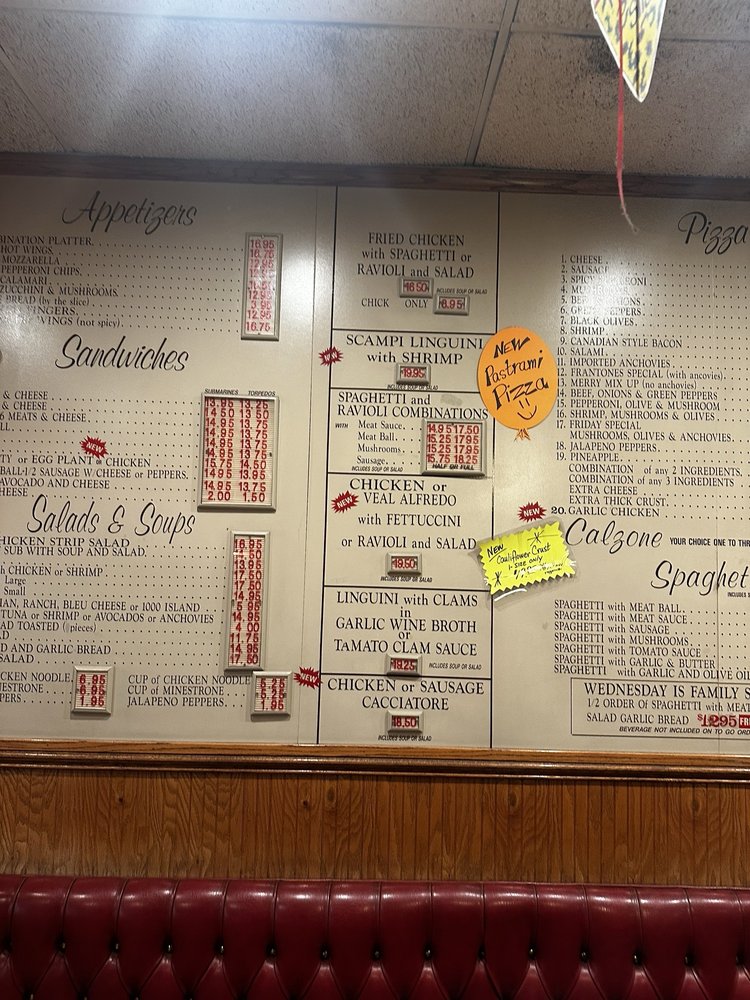 Appetizers
BINATION PLATTER.
HOT WINGS.
MOZZARELLA
PEPPERONI CHIPS.
CALAMARI
ZUCCHINI & MUSHROOMS.
BREAD (by the slice)
FINGERS.
WINGS (not spicy)
16.95
16.75
12.95
12.95
3.95
12.95
16.75
Sandwiches
SUBMARINES TORPEDOS
& CHEESE
& CHEESE
MEATS & CHEESE.
NEW
TY or EGG PLANT or CHICKEN
BALL-1/2 SAUSAGE W/CHEESE or PEPPERS.
AVOCADO AND CHEESE
HEESE
13.95 13.25
14.50 13.75
14.50 13.75
14.95 13.75
14.95 13.75
15.75 14.50
14.95 13.95
14.95 13.75
2.00 1.50
Salads & Soups
HICKEN STRIP SALAD
SUB WITH SOUP AND SALAD.
CHICKEN or SHRIMP
Large
Small
IAN, RANCH, BLEU CHEESE or 1000 ISLAND
TUNA or SHRIMP or AVOCADOS or ANCHOVIES
AD TOASTED (pieces)
D AND GARLIC BREAD
SALAD
16.95
10.50
13.95
17.50
14.95
5.95
14.95
4.00
11.75
14.95
17.50
CKEN NOODLE
NESTRONE
PERS.
6.95
6.95
1.95
CUP of CHICKEN NOODLE
CUP of MINESTRONE
JALAPENO PEPPERS
1.95
NEW
FRIED CHICKEN
with SPAGHETTI or
RAVIOLI and SALAD
16.50
INCLUDES SOUP OR SALAD
CHICK ONLY 6.95
SCAMPI LINGUINI
with SHRIMP
19.95
INCLUDES SOUP OR SALAD
SPAGHETTI and
RAVIOLI COMBINATIONS
WITH Meat Sauce.
Meat Ball.
Mushrooms.
Sausage.
INCLUDES SOUP OR SALAD
14.95 17.50
15.25 17.95
15.25 17.95
15.75 18.25
HALF OR FULL
NEW
CHICKEN or
VEAL ALFREDO
with FETTUCCINI
or RAVIOLI and SALAD
19.50
INCLUDES SOUP OR SALAD
LINGUINI with CLAMS
in
GARLIC WINE BROTH
or
TAMATO CLAM SAUCE
19.25 INCLUDES SOUP OR SALAD
CHICKEN or SAUSAGE
CACCIATORE
18.50
INCLUDES SOUP OR SALAD
NEW
Pastrami
Pizza
NEW
Cauliflower Crust
1 SIZE ONLY
Pizza
1. CHEESE
2. SAUSAGE
3. SPICY
4.
5.
6. PEPPERS
7. BLACK OLIVES.
8. SHRIMP
9. CANADIAN STYLE BACON
10. SALAMI
11. IMPORTED ANCHOVIES
12. FRANTONES SPECIAL (with ancovies)
13. MERRY MIX UP (no anchovies)
14. BEEF, ONIONS & GREEN PEPPERS
15. PEPPERONI, OLIVE & MUSHROOM
16. SHRIMP, MUSHROOMS & OLIVES
17. FRIDAY SPECIAL
MUSHROOMS, OLIVES & ANCHOVIES.
18. JALAPENO PEPPERS
19. PINEAPPLE
COMBINATION of any 2 INGREDIENTS.
COMBINATION of any 3 INGREDIENTS
EXTRA CHEESE
EXTRA THICK CRUST.
NEW
20. GARLIC CHICKEN
Calzone YOUR CHOICE ONE TO THR
Spaghet
INCLUDES S
SPAGHETTI with MEAT BALL.
SPAGHETTI with MEAT SAUCE
SPAGHETTI with SAUSAGE
SPAGHETTI with MUSHROOMS
SPAGHETTI with TOMATO SAUCE
SPAGHETTI with GARLIC & BUTTER
SPAGHETTI with GARLIC AND OLIVE OIL
WEDNESDAY IS FAMILY S
1/2 ORDER OF SPAGHETTI with MEAT
SALAD GARLIC BREAD $12.95
BEVERAGE NOT INCLUDED ON TO GO ORD